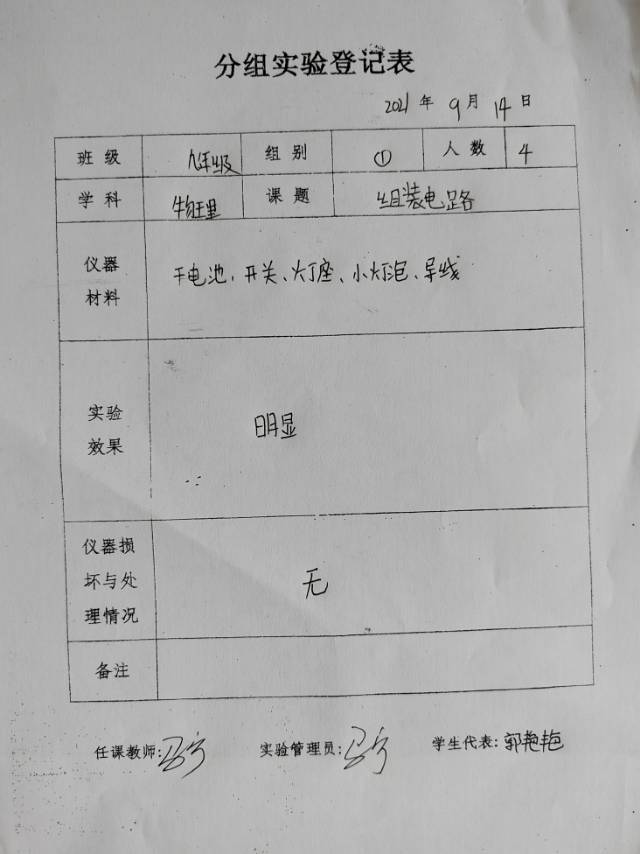 分组实验登记表
2021 年 9 月 14 日
班 级 九年级 组 别 ① 人 数 4
学 科 物理 课 题 组装电路
仪器
材料
干电池、开关、灯座、小灯泡、导线
实验
效果
明显
仪器损
坏与处
理情况
无
备注
任课教师: 实验管理员: 学生代表: 郭艳艳